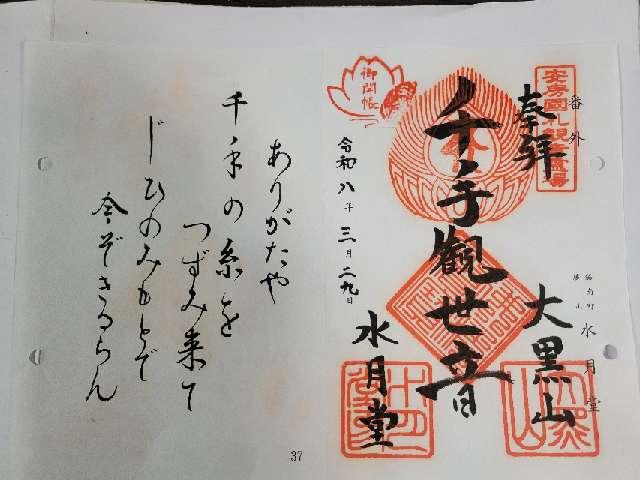 安房國札観音霊場
番外
奉拝
鋸南町
勝山
水月堂
大黒山
千手觀世音
水月堂
御開帳
令和八年三月二九日
ありがたや
千手の糸を
つずみ来て
じひのみもとで
今ぞきるらん
37